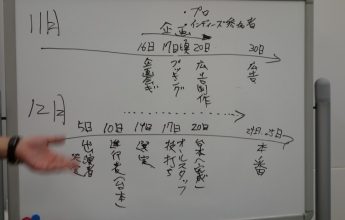 11月
・プロ
企画
インディーズ発表者
16日 17日頃 20日 30日
企画会議
ブッキング
広告制作
広告
12月
5日 10日 14日 17日 20日 24日、25日
出演者
進行表(台本)
選定
技打ち
オールスタッフ
台本(完成)
本番